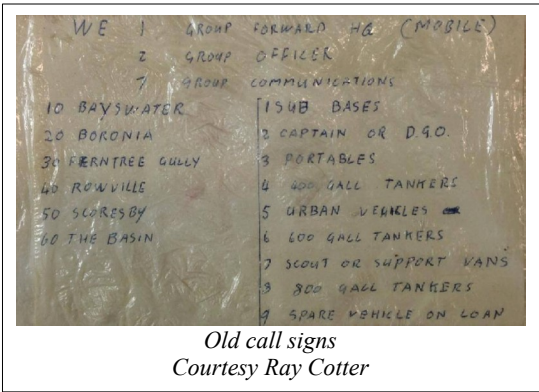 WE 1 GROUP FORWARD HQ (MOBILE)
2 GROUP OFFICER
7 GROUP COMMUNICATIONS
10 BAYSWATER
20 BORONIA
30 FERNTREE GULLY
40 ROWVILLE
50 SCORESBY
60 THE BASIN
1 SUB BASES
2 CAPTAIN OR D.G.O.
3 PORTABLES
4 400 GALL TANKERS
5 URBAN VEHICLES
6 600 GALL TANKERS
7 SCOUT OR SUPPORT VANS
8 800 GALL TANKERS
9 SPARE VEHICLE ON LOAN
Old call signs
Courtesy Ray Cotter